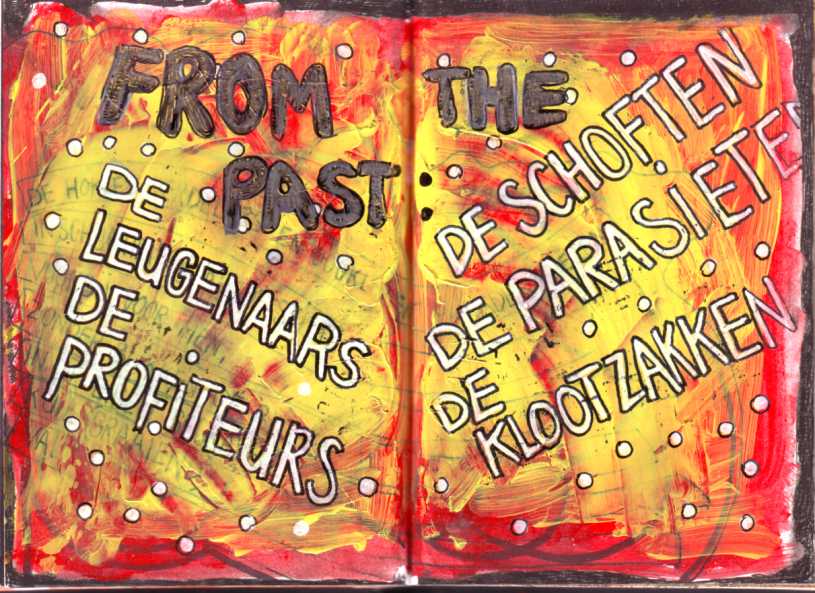 FROM THE
PAST
DE
LEUGENAARS
DE
PROFITEURS
DE SCHOFTEN
DE PARASIETEN
DE
KLOOTZAKKEN